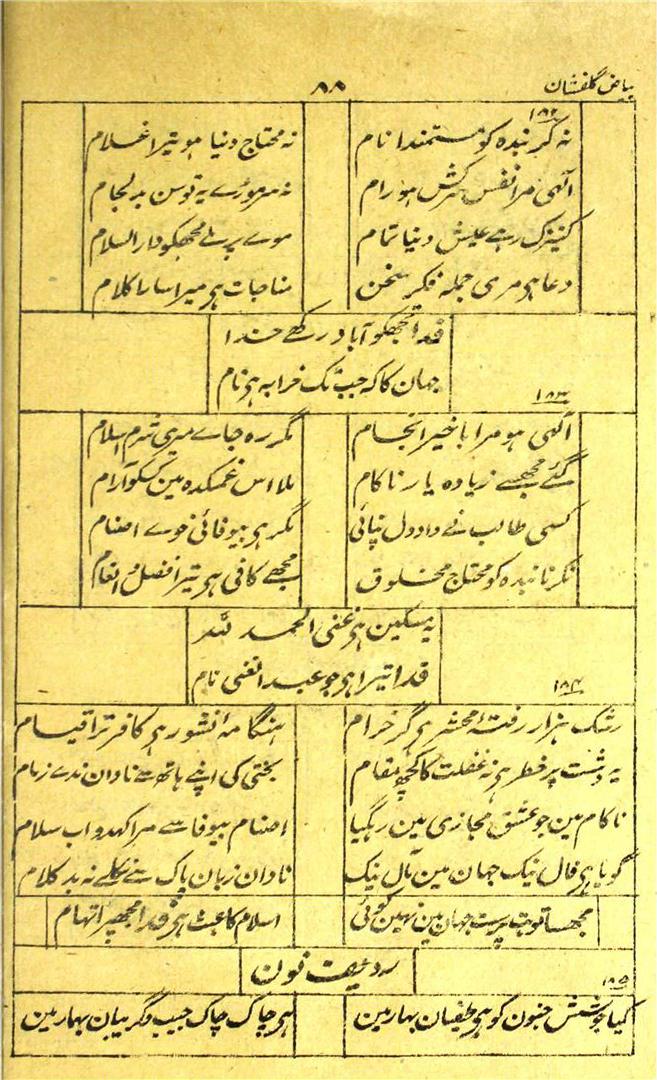 بیاض گلفشان
۸۸
۱۸۲
نہ کر بندہ کو مستمند انام
نہ محتاج دنیا ہو تیرا غلام
الٰہی مرا نفس سرکش ہو رام
نہ سر موڑے یہ توسن بدلجام
کنیزک رہے عیش دنیا تمام
موے پر ملے مجھکو دار السلام
دعا ہی مری جملہ فکر سخن
مناجات ہی میرا سارا کلام
فدا تجھکو آباد رکھے خدا
جہان کا کہ جب تک خرابہ ہی نام
۱۸۳
الٰہی ہو مرا باخیر انجام
مگر رہ جاے میری شرم اسلام
گئے مجھسے زیادہ یار ناکام
ملا اس غمکدہ مین کسکو آرام
کسی طالب نے داد دل نپائی
مگر ہی بیوفائی خوے اصنام
نکرنا بندہ کو محتاج مخلوق
مجھے کافی ہی تیرا فضل و انعام
یہ مسکین ہی غنی الحمد للہ
فدا تیرا ہی جو عبد الغنی نام
۱۸۴
رشک ہزار رفتۂ محشر ہی گر خرام
ہنگامہ انشور ہی کافر ترا قیام
یہ دشت پر خطر ہی نہ غفلت کا کچھ مقام
بختی کی اپنے ہاتھ سے نادان ندے زمام
ناکام مین جو عشق مجازی مین رہگیا
اصنام بیوفا سے مرا کہدو اب سلام
گویا ہی فال نیک جہان مین مآل نیک
نادان زبان پاک سے نکلے نہ بد کلام
مجھسا تو بت پرست جہان مین نہین کوئی
اسلام کا عبث ہی فدا مجھپر اتہام
ردیف نون
۱۸۵
کیا جوشش جنون کو ہی طغیان بہار مین
ہی چاک چاک جیب و گریبان بہار مین